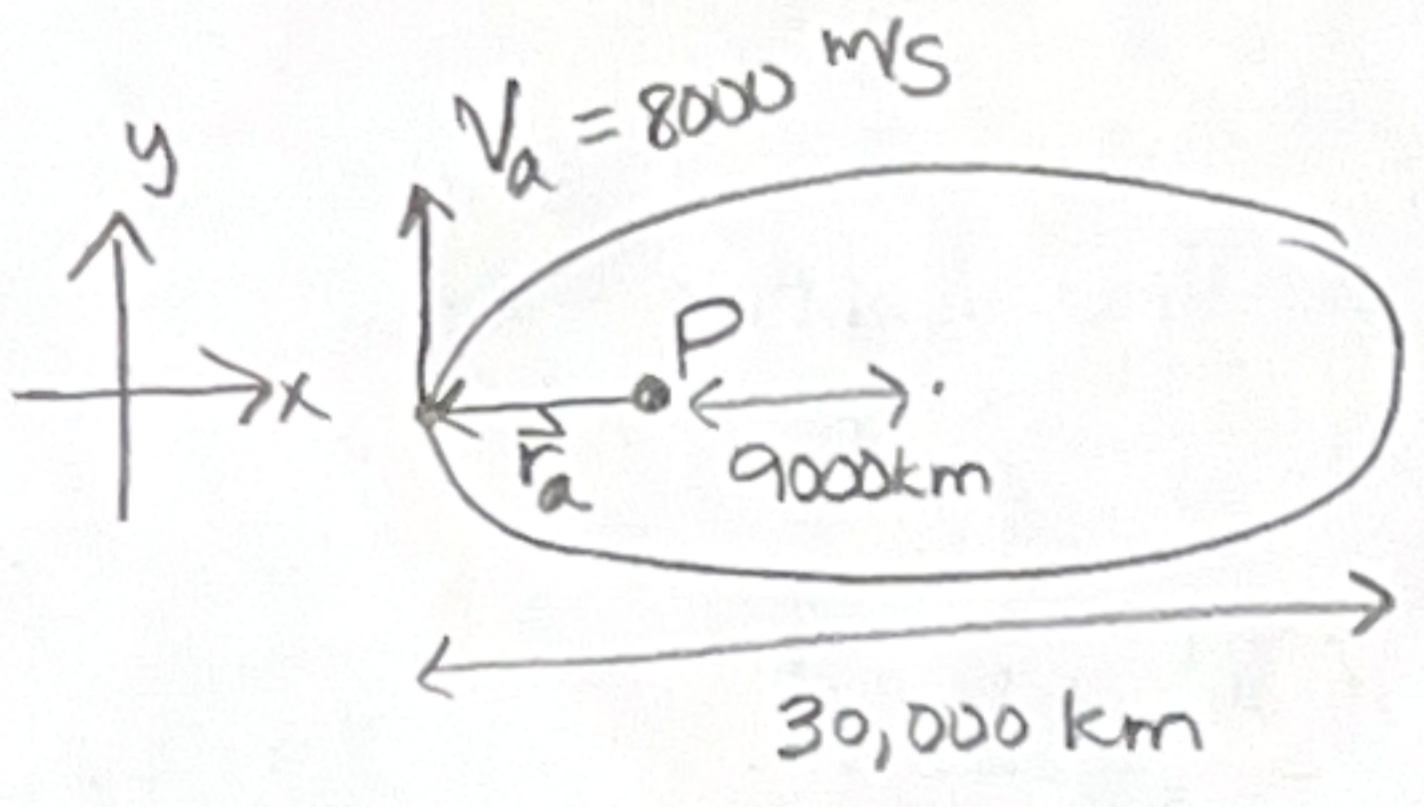 y
x
Va = 8000 m/s
P
ra
9000km
30,000 km